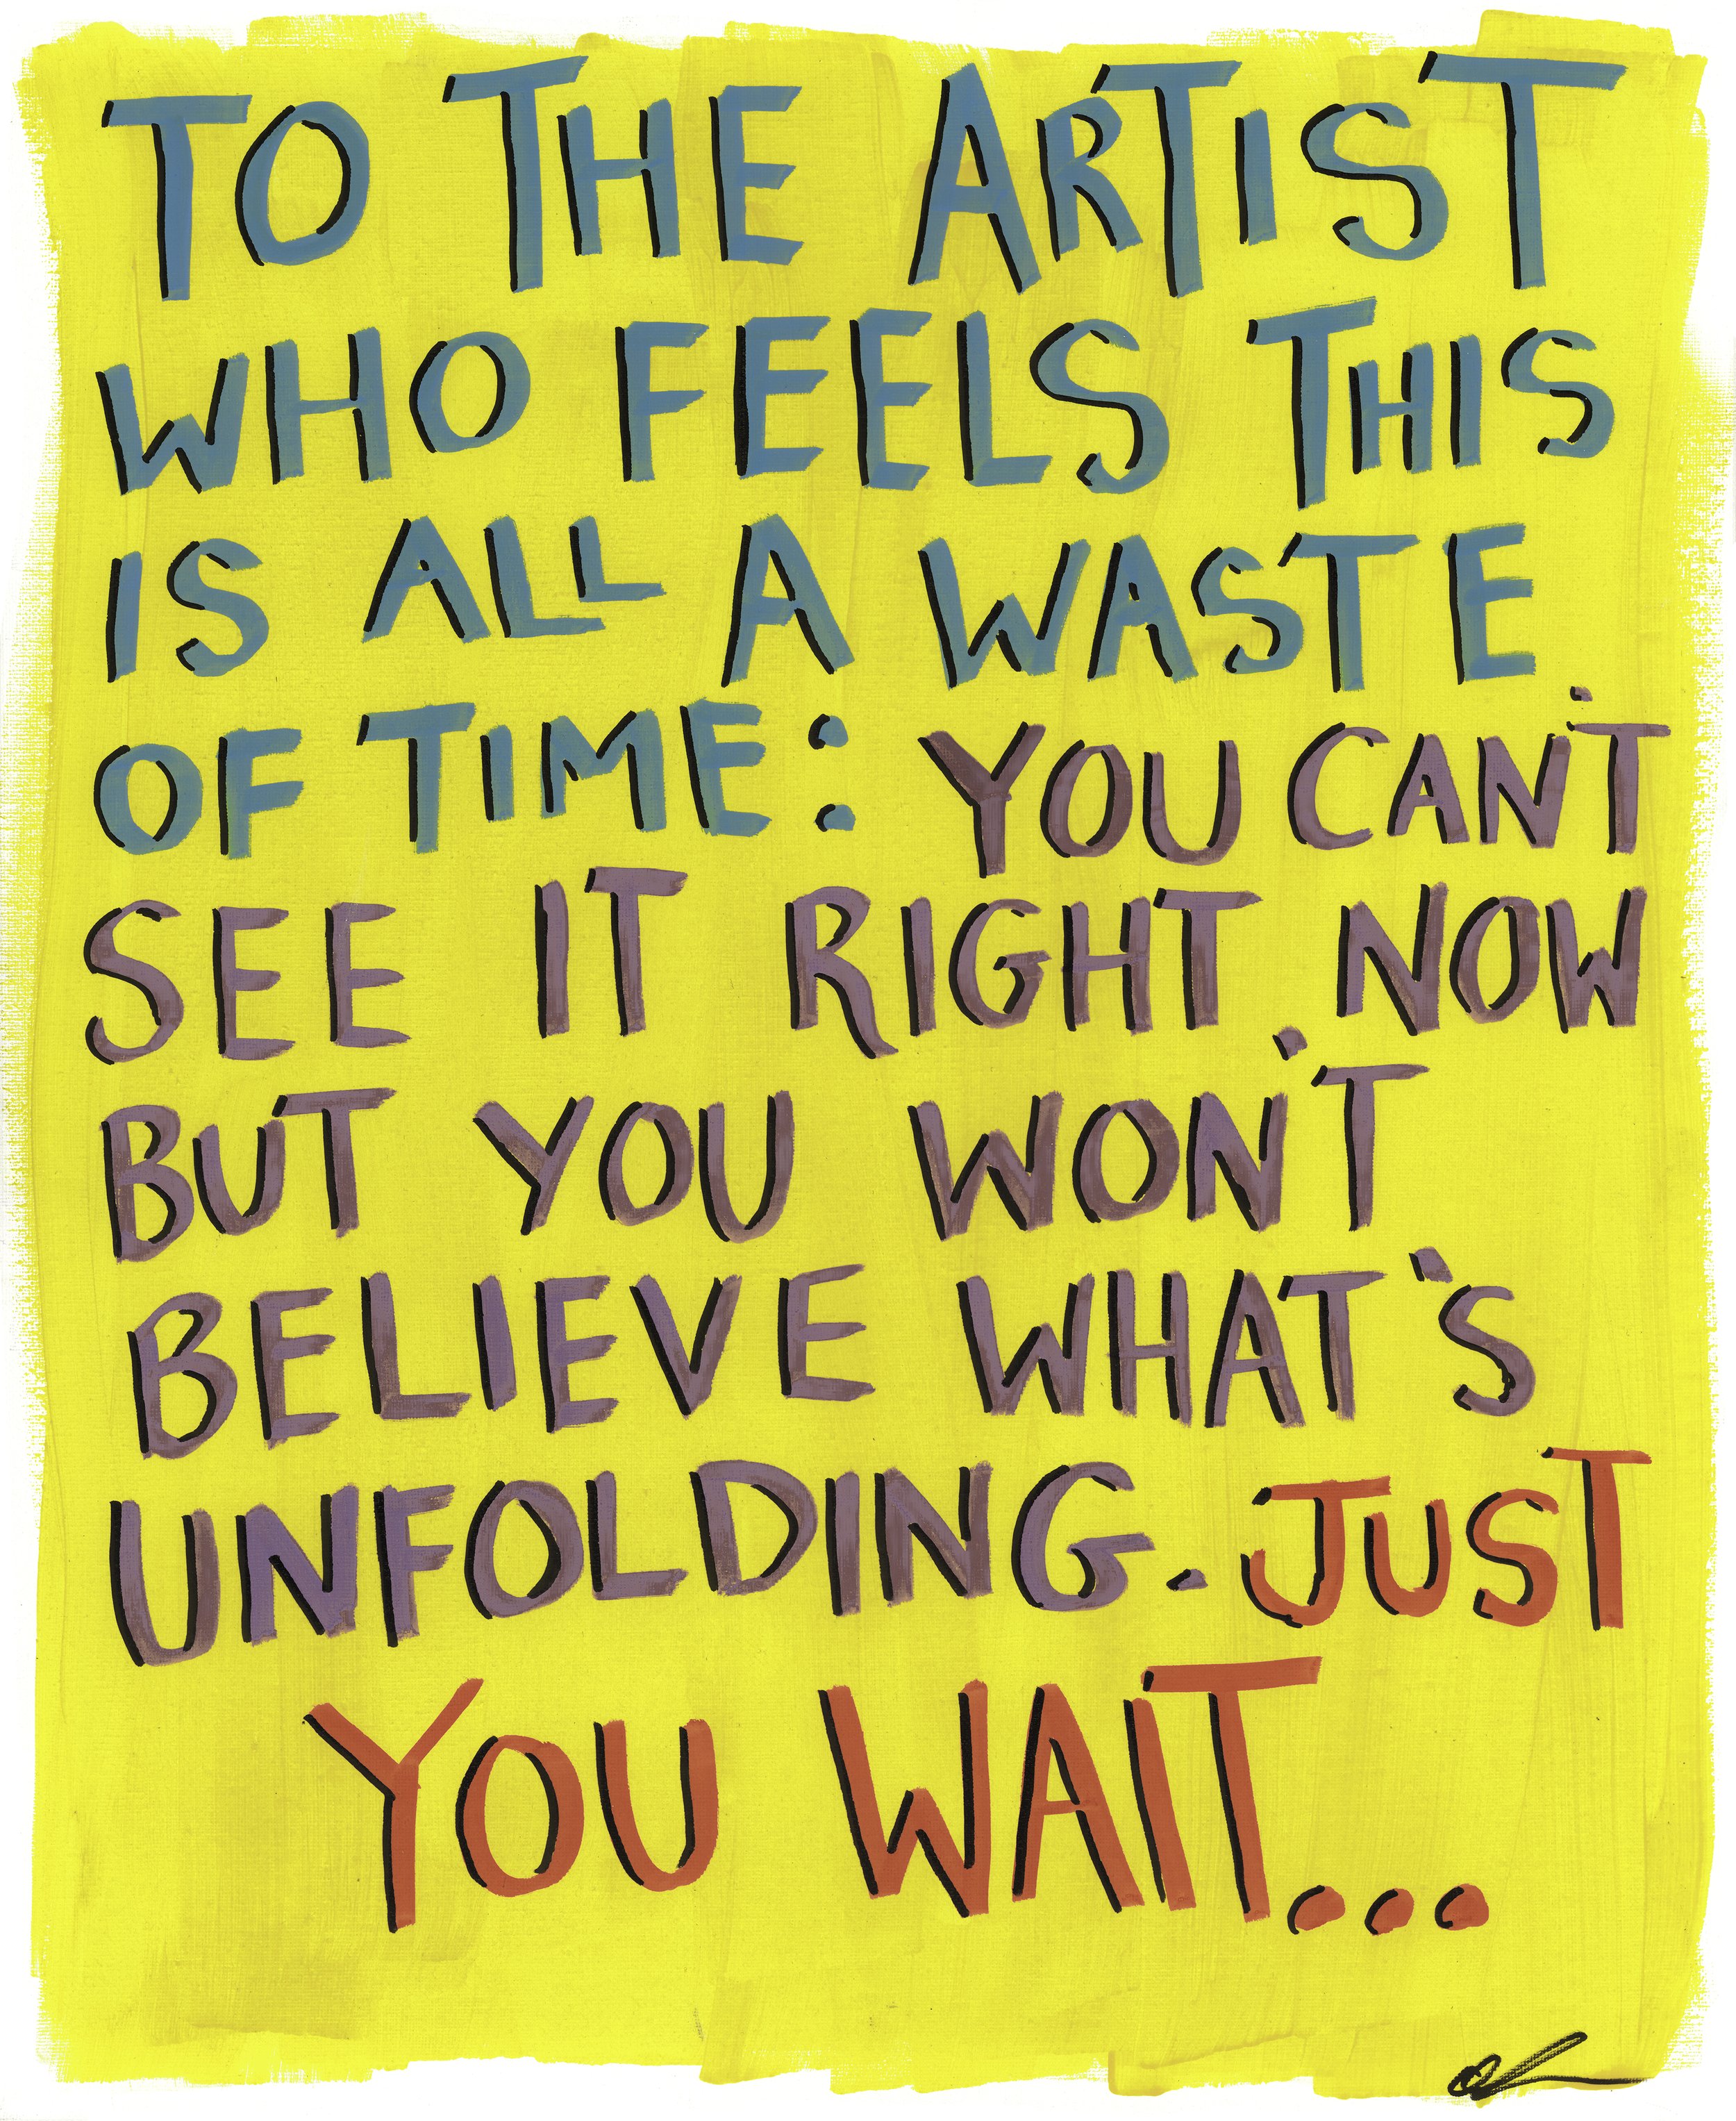 TO THE ARTIST
WHO FEELS THIS
IS ALL A WASTE
OF TIME: YOU CAN'T
SEE IT RIGHT NOW
BUT YOU WON'T
BELIEVE WHAT'S
UNFOLDING. JUST
YOU WAIT...